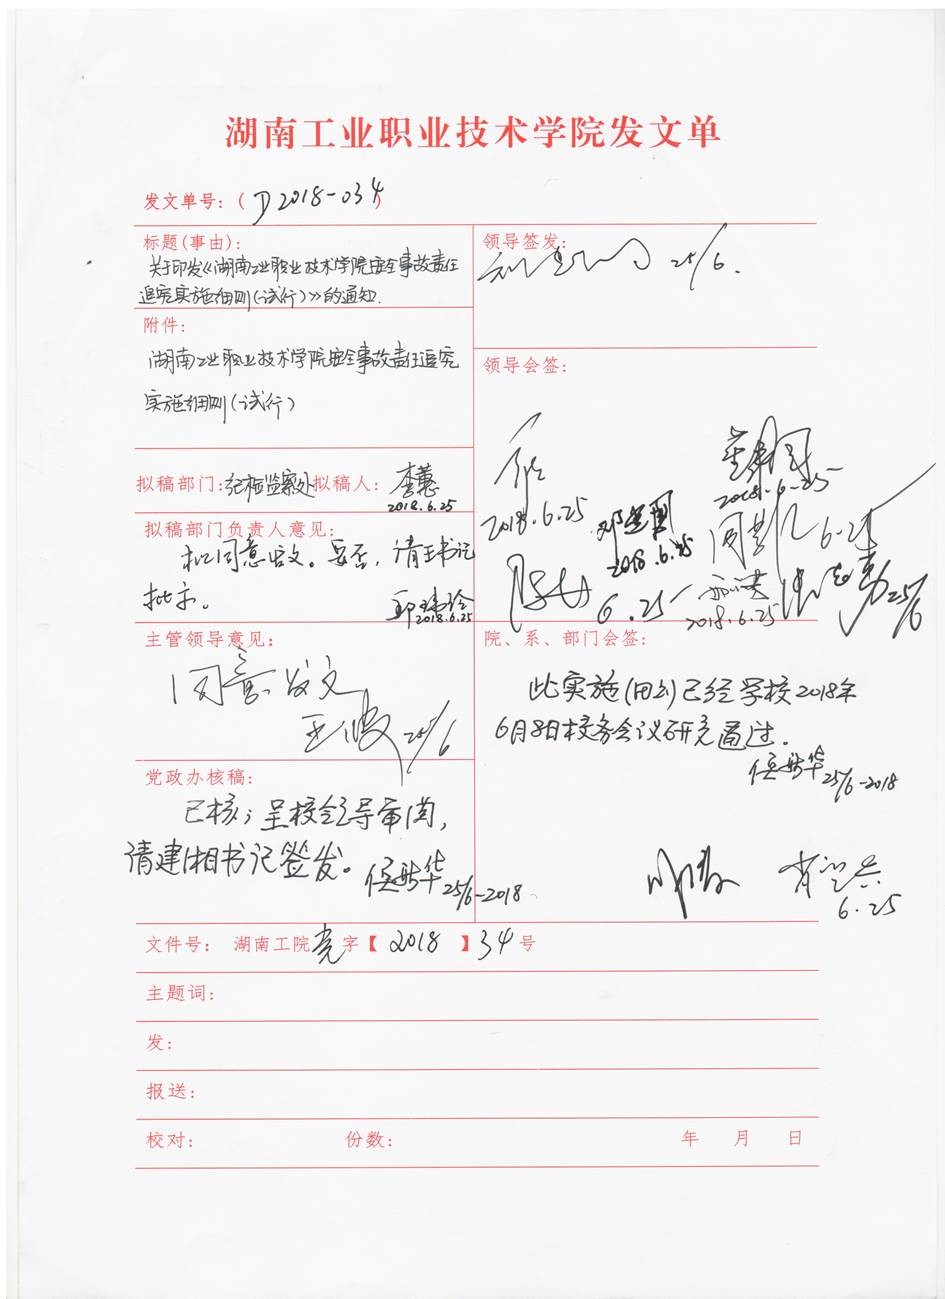 湖南工业职业技术学院发文单
发文单号：( D2018-034 )
标题(事由)：
关于印发《湖南工业职业技术学院安全事故责任
追究实施细则(试行)》的通知.
附件：
湖南工业职业技术学院安全事故责任追究
实施细则(试行)
拟稿部门：纪检监察处 拟稿人：李
2018.6.25
拟稿部门负责人意见：
拟同意发文。妥否，请王书记
批示。
2018.6.25
主管领导意见：
同意发文
25/6
党政办核稿：
已核；呈校领导审阅，
请建湘书记签发。 华 25/6-2018
领导签发：
25/6.
领导会签：
2018.6.25
2018.6.25
2018.6.25
6.25
6.25
2018.6.25
25/6
院、系、部门会签：
此实施(细则)已经学校2018年
6月8日校务会议研究通过.
华 25/6-2018
6.25
文件号： 湖南工院党字【 2018 】34号
主题词：
发：
报送：
校对： 份数： 年 月 日